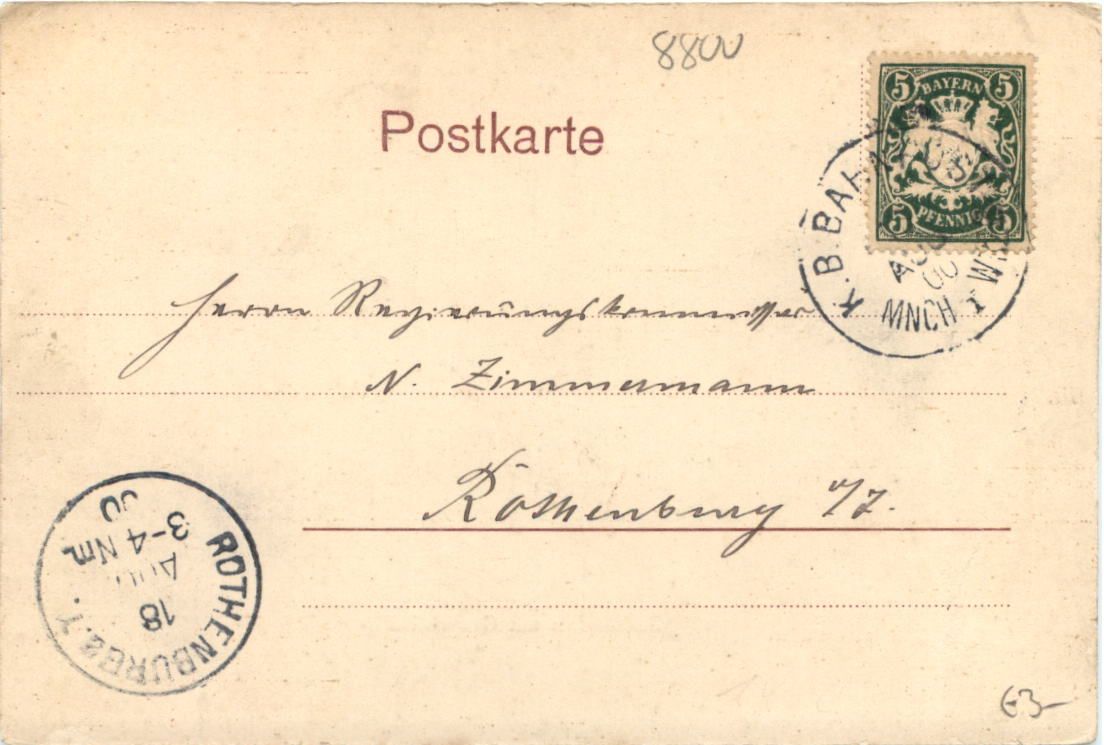 8800
Postkarte
5 BAYERN 5
5 PFENNIG 5
K.B.BAHNPOST
AUG
00
MNCH I W
Herrn Regierungskommissär
N. Zimmermann
Rothenburg o/T.
ROTHENBURG a. T.
18
AUG
3-4 Nm
00
€3-